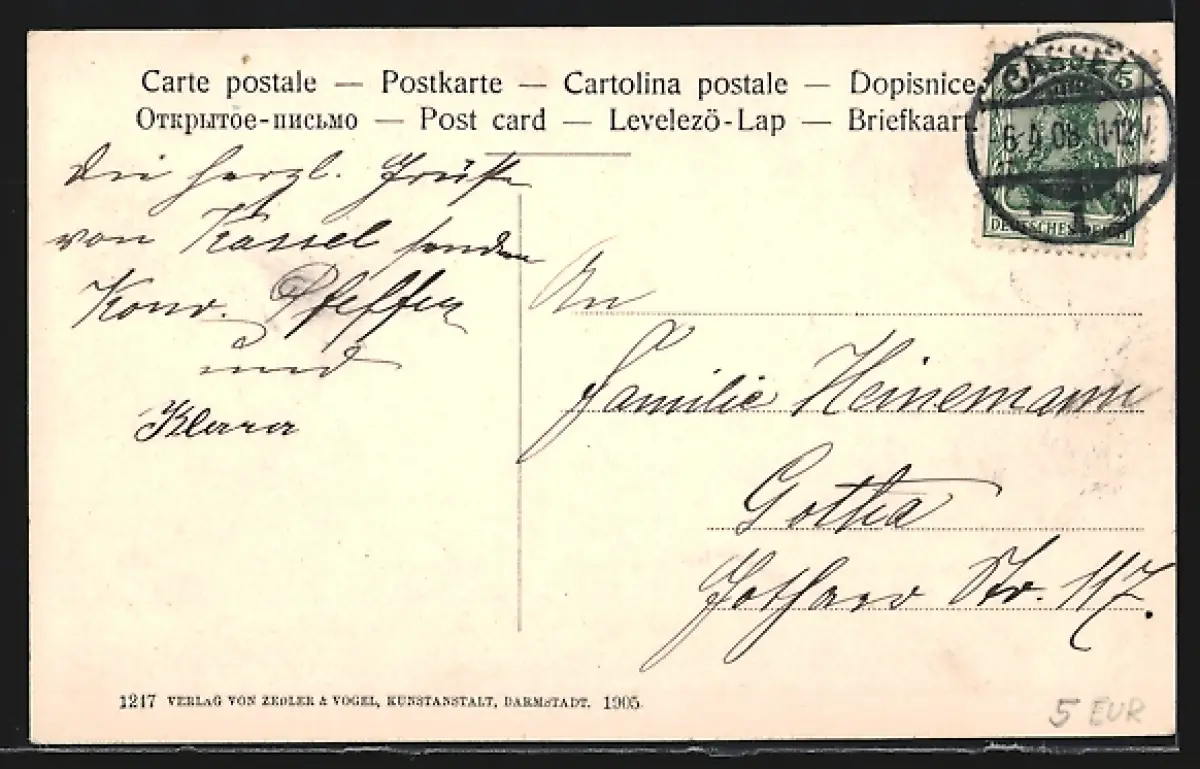 Carte postale — Postkarte — Cartolina postale — Dopisnice
Открытое-письмо — Post card — Levelező-Lap — Briefkaart.
CASSEL
6.4.08. 11-12V
1
5
DEUTSCHES REICH
Die herzl. Grüße
von Kassel senden
Konr. Pfeffer
und
Klara
An
Familie Heinemann
Gotha
Str. 117.
1247 VERLAG VON ZEDLER & VOGEL, KUNSTANSTALT, DARMSTADT. 1905.
5 EUR